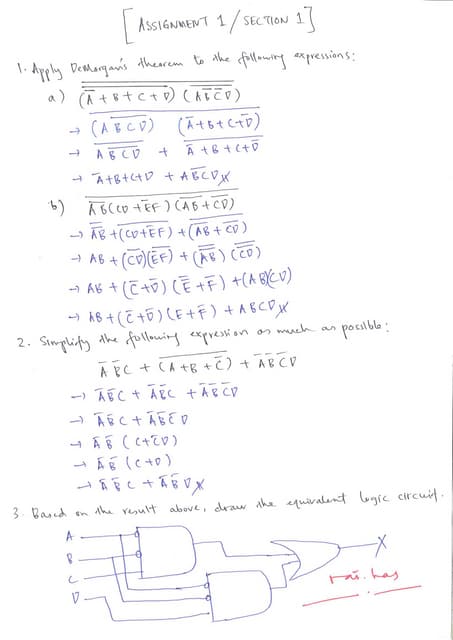 [ASSIGNMENT 1 / SECTION 1]
1. Apply DeMorgan's theorem to the following expressions:
a) \overline{\overline{(\overline{A}+B+C+D)} (\overline{A\overline{B}\overline{C}D})}
→ \overline{(A\overline{BCD}) (\overline{A}+B+C+\overline{D})}
→ \overline{A\overline{BCD}} + \overline{\overline{A}+B+C+\overline{D}}
→ \overline{A}+B+C+D + A\overline{B}\overline{C}D
b) \overline{\overline{AB}(CD+\overline{E}F)(\overline{AB}+\overline{CD})}
→ \overline{\overline{AB}} + \overline{(CD+\overline{E}F)} + \overline{(\overline{AB}+\overline{CD})}
→ AB + (\overline{CD})(\overline{\overline{E}F}) + (\overline{\overline{AB}})(\overline{\overline{CD}})
→ AB + (\overline{C}+\overline{D})(\overline{\overline{E}}+\overline{F}) + (AB)(CD)
→ AB + (\overline{C}+\overline{D})(E+\overline{F}) + ABCD
2. Simplify the following expression as much as possible:
\overline{A}\overline{B}C + \overline{(A+B+\overline{C})} + \overline{A}\overline{B}\overline{C}D
→ \overline{A}\overline{B}C + \overline{A}\overline{B}C + \overline{A}\overline{B}\overline{C}D
→ \overline{A}\overline{B}C + \overline{A}\overline{B}\overline{C}D
→ \overline{A}\overline{B}(C+\overline{C}D)
→ \overline{A}\overline{B}(C+D)
→ \overline{A}\overline{B}C + \overline{A}\overline{B}D
3. Based on the result above, draw the equivalent logic circuit.
A
B
C
D
X